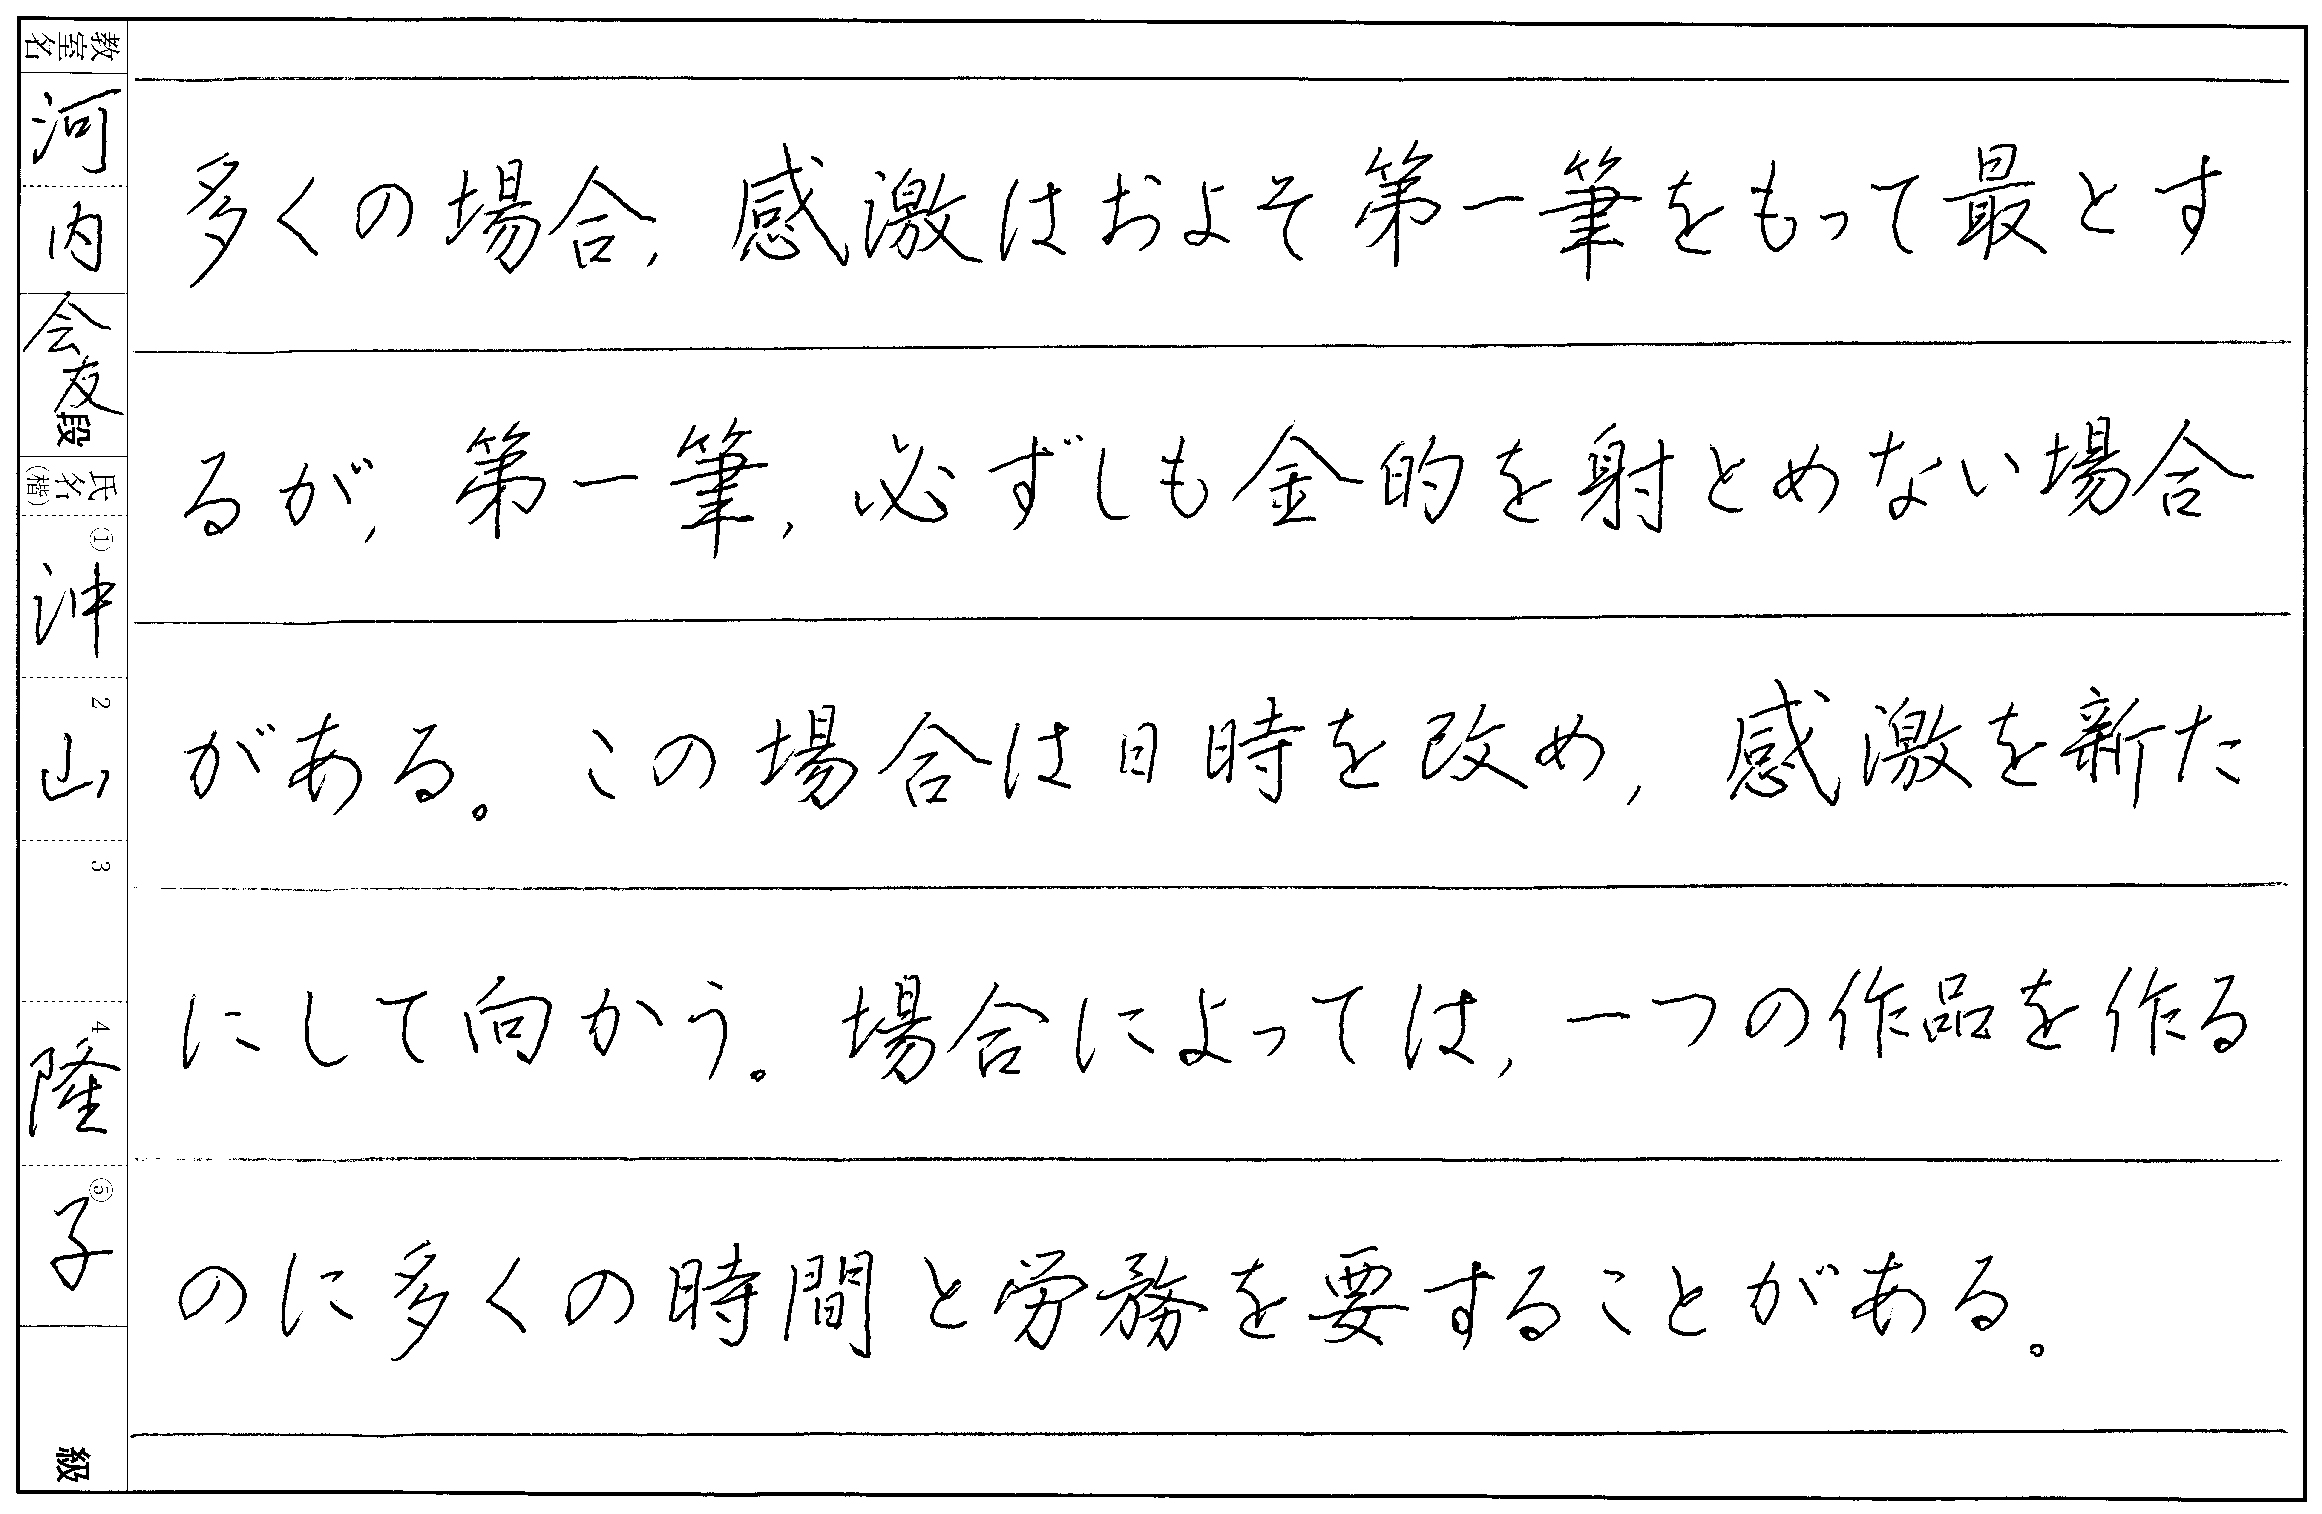 教室名
河内
会友段
氏名(楷)
①沖
2山
3
4隆
⑤子
級
多くの場合,感激はおよそ第一筆をもって最とす
るが,第一筆,必ずしも金的を射とめない場合
がある。この場合は日時を改め,感激を新た
にして向かう。場合によっては,一つの作品を作る
のに多くの時間と労務を要することがある。